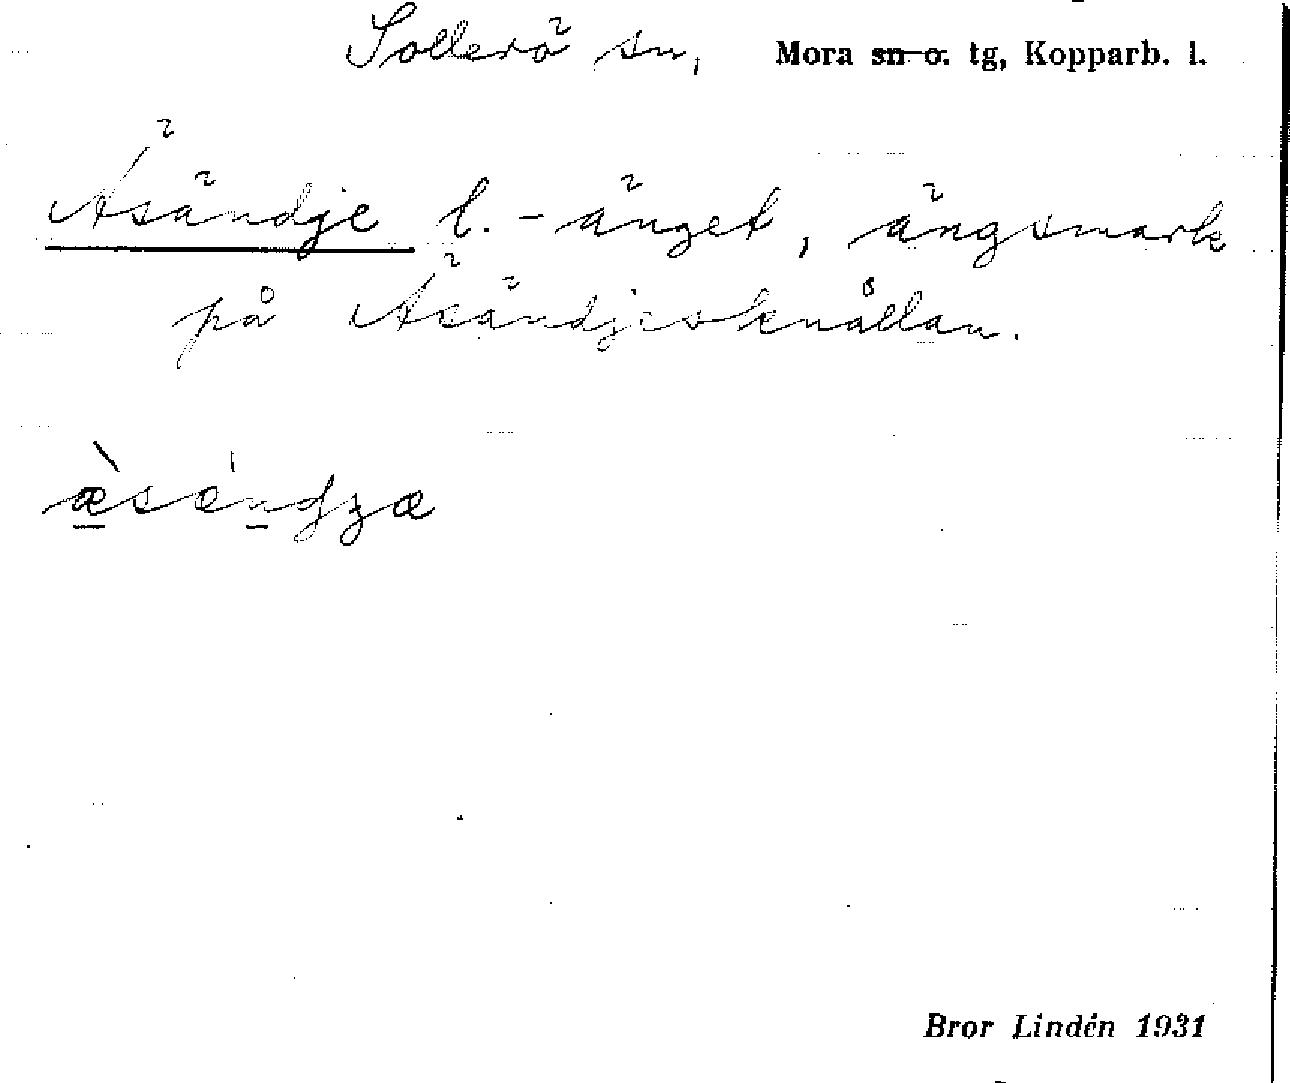 Sollerö sn, Mora sn o. tg, Kopparb. l.
Äsändje l. -änget, ängsmark
på Äsändjesknållan.
æ̀sændʒæ
Bror Lindén 1931